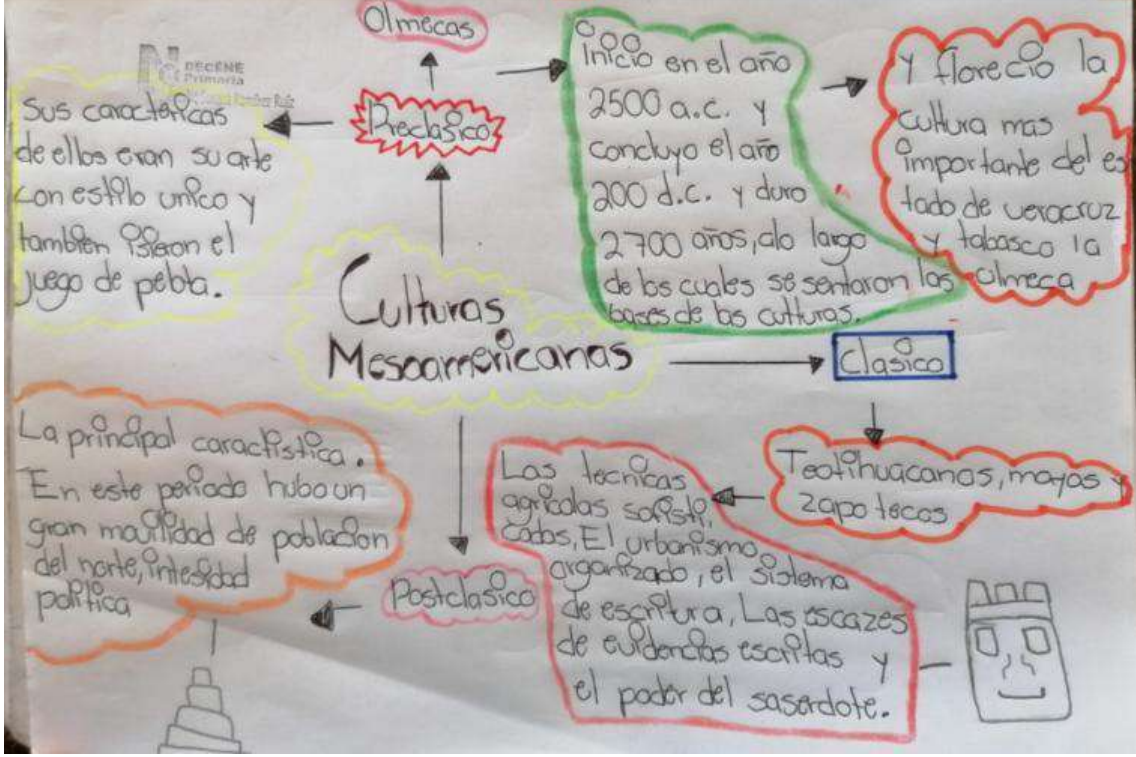 Olmecas
DECENE
Primaria
Preclasico
Sus caracteficas
de ellos eran su arte
con estilo unico y
tambien isieron el
juego de pelota.
inicio en el año
2500 a.c. y
concluyo el año
200 d.c. y duro
2700 años, alo largo
de los cuales se sentaron las
bases de las culturas.
Y florecio la
cultura mas
importante del es
tado de veracruz
y tabasco la
olmeca
Culturas
Mesoamericanas
Clasico
Teotihuacanos, mayas y
zapotecos
Las tecnicas
agricolas sofisti,
cadas, El urbanismo
organizado, el sistema
de escritura, Las escazes
de evidencias escritas y
el poder del saserdote.
Postclasico
La principal caractistica.
En este periodo hubo un
gran de poblacion
del norte, intesidad
politica